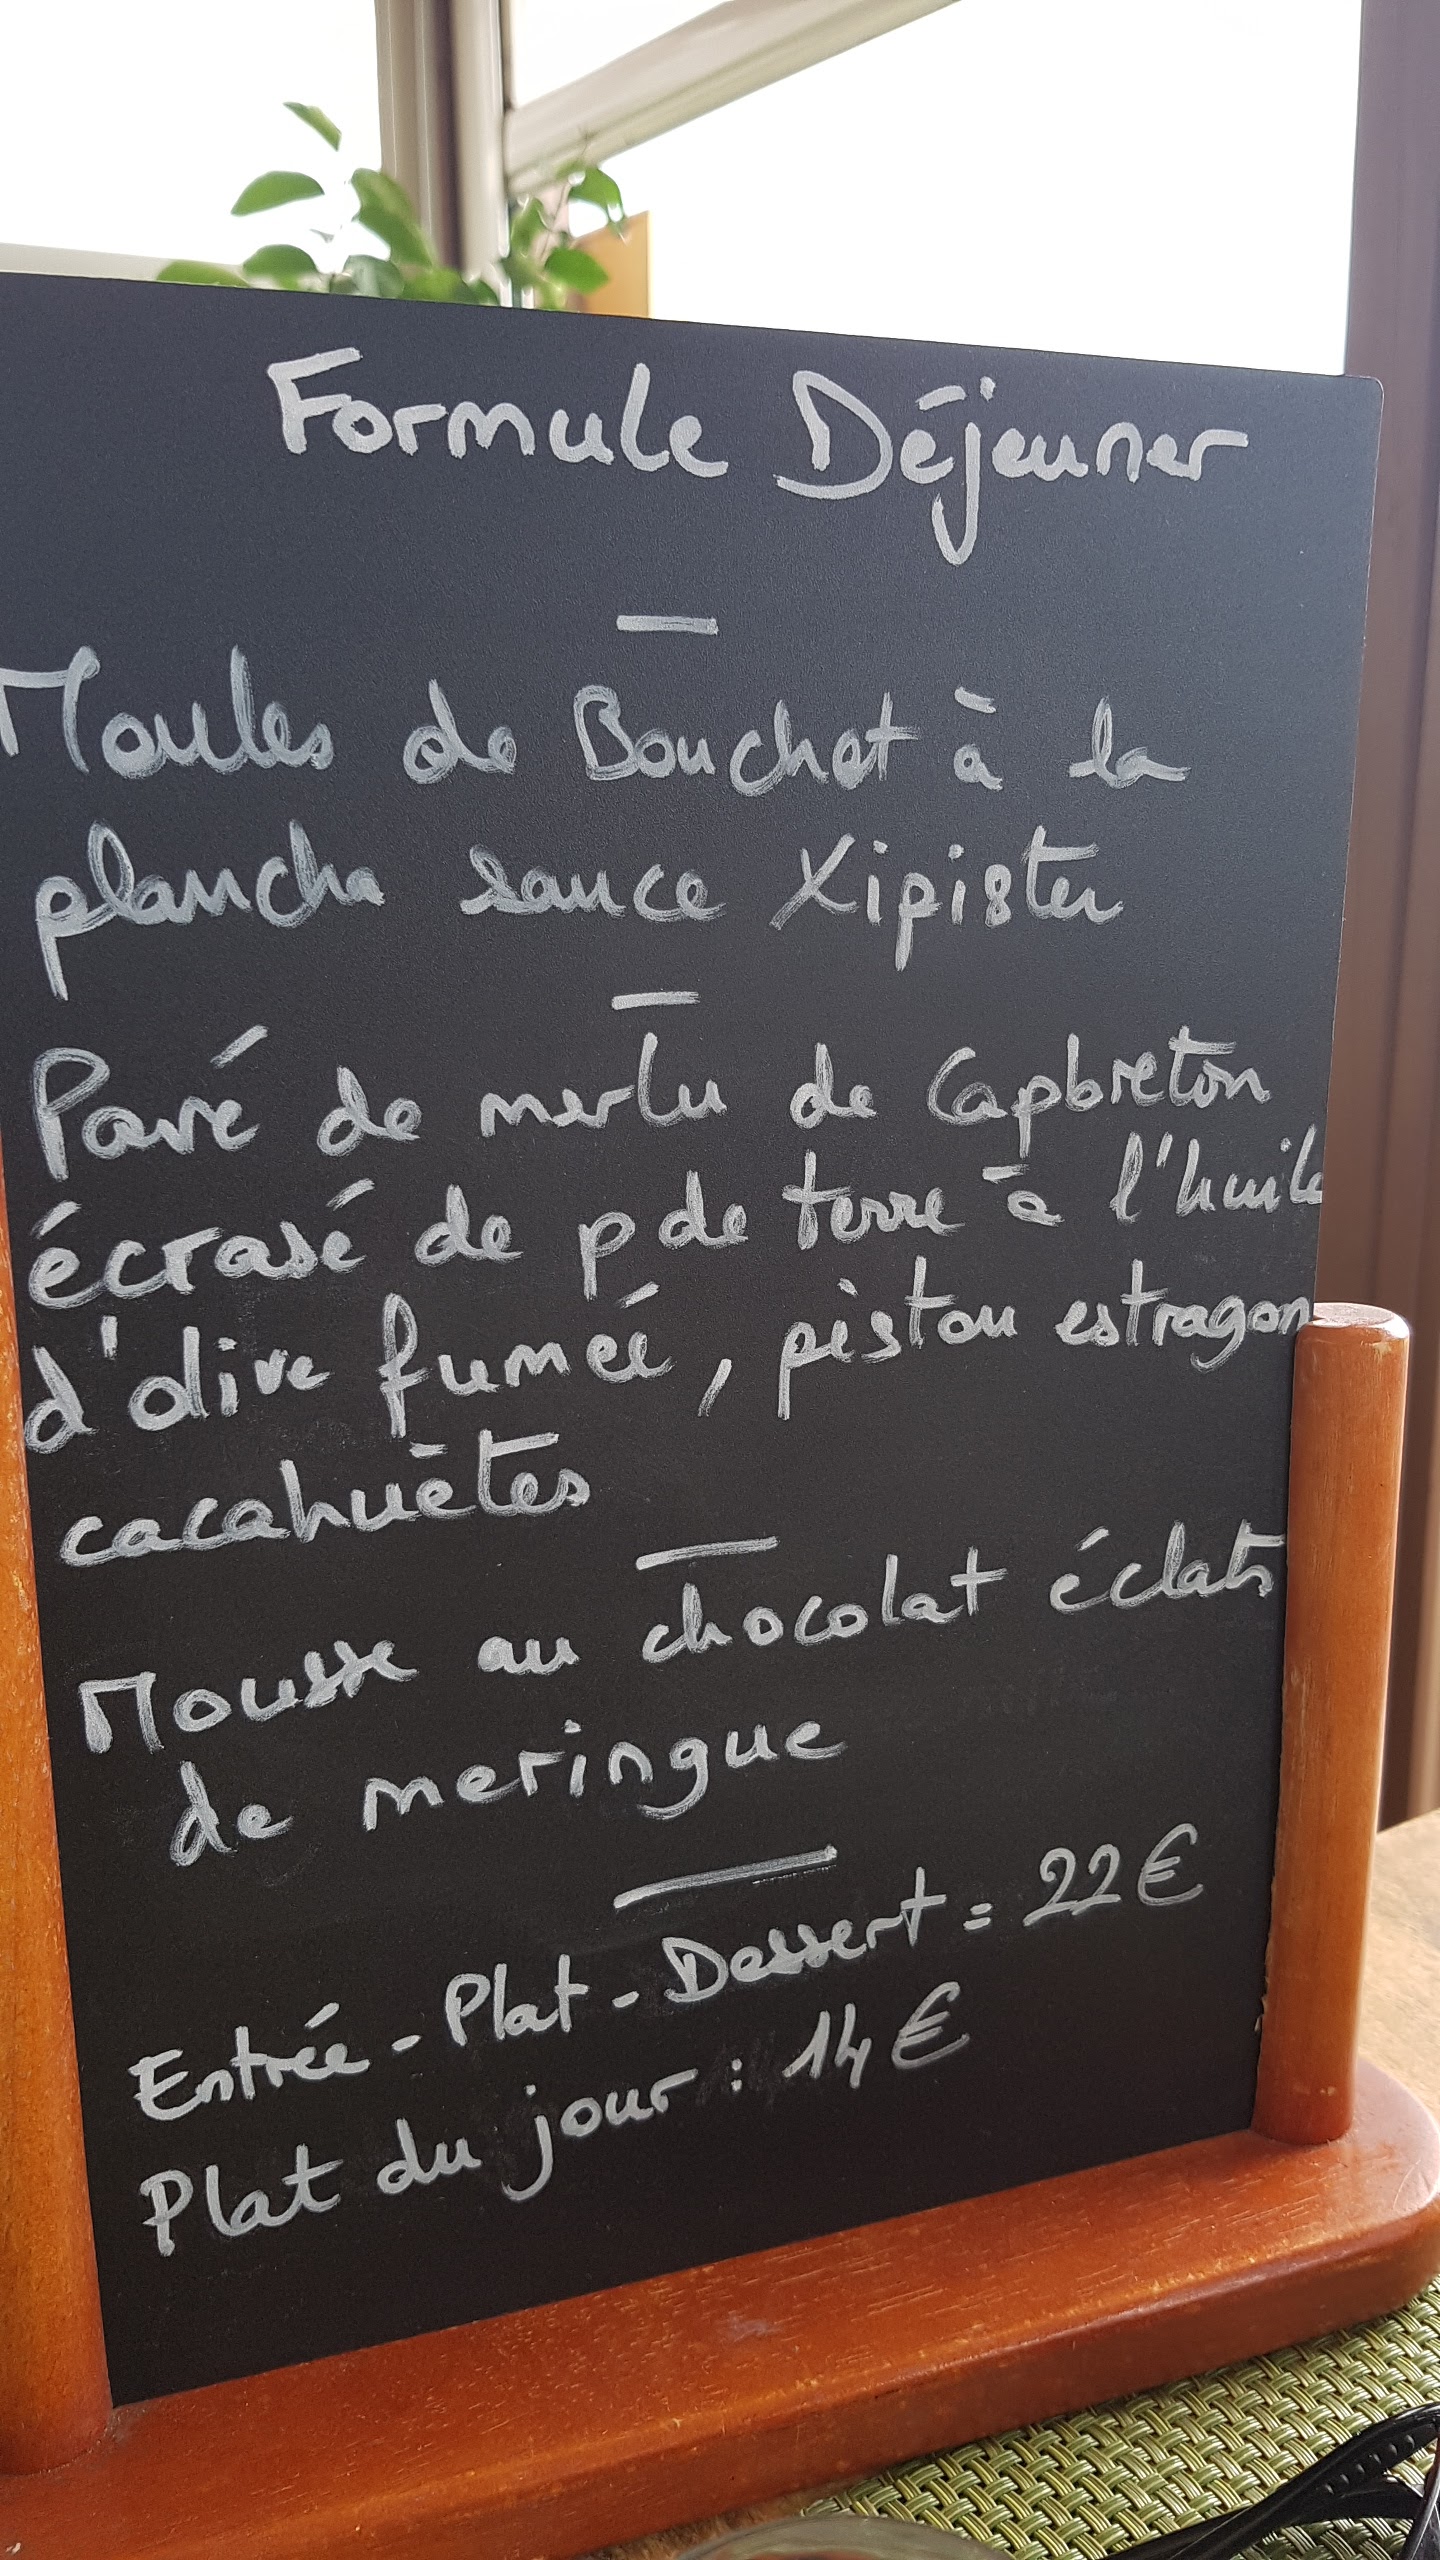 Formule Déjeuner
—
Moules de Bouchot à la
plancha sauce Xipister
—
Pavé de merlu de Capbreton
écrasé de p de terre à l'huile
d'olive fumée, pistou estragon
cacahuètes
—
Mousse au chocolat éclats
de meringue
—
Entrée - Plat - Dessert = 22€
Plat du jour : 14€